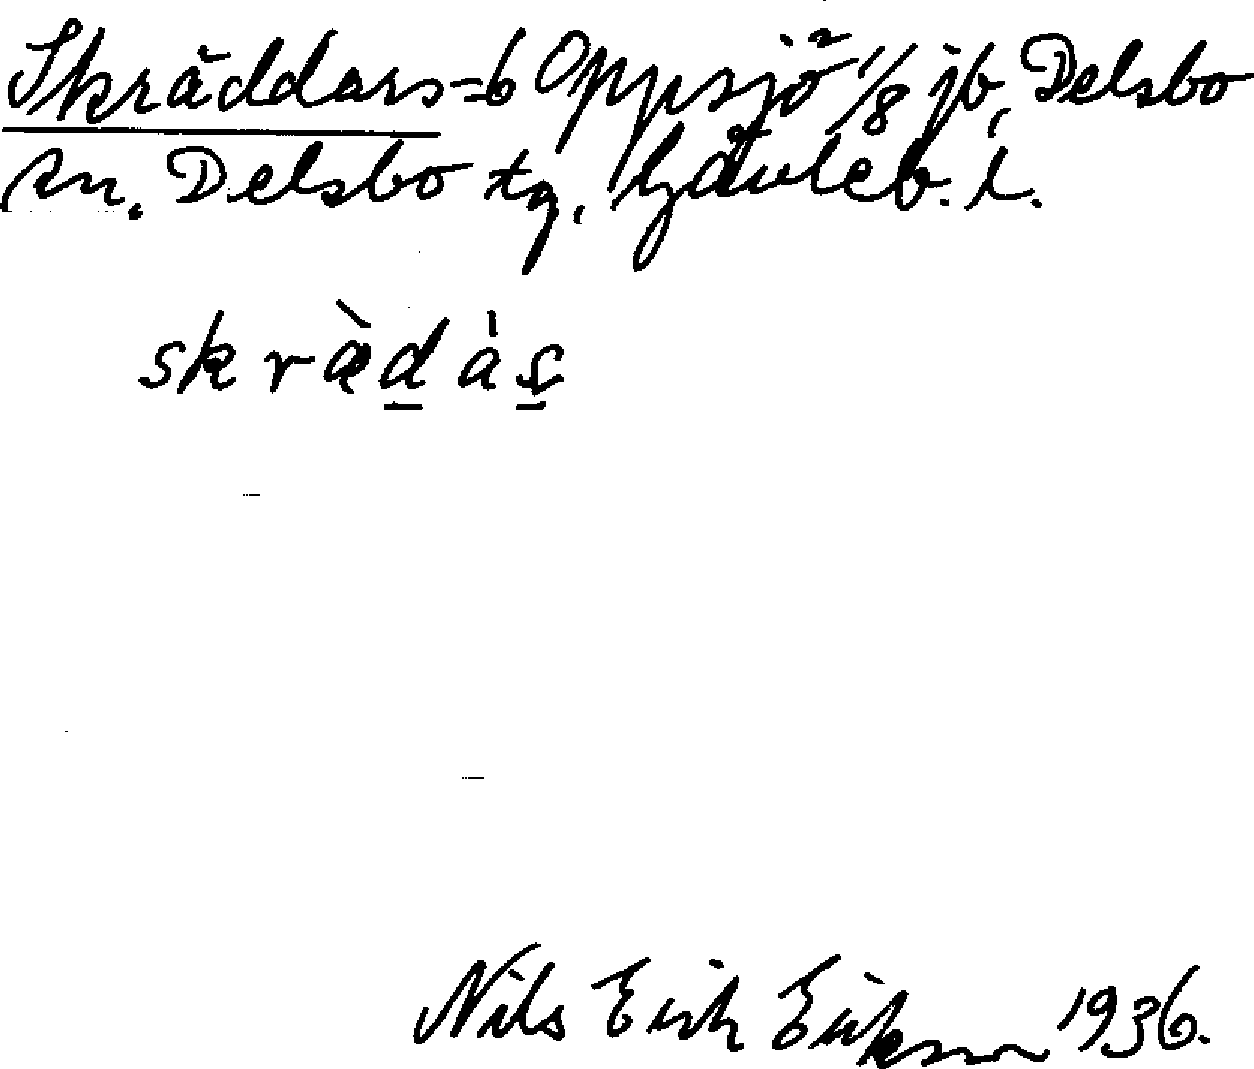 Skräddars=b Oppsjö² 1/8 jb, Delsbo
sn. Delsbo tg, Gävleb. l.
skræ̀d̲ás̲
Nils Erik Erikson 1936.